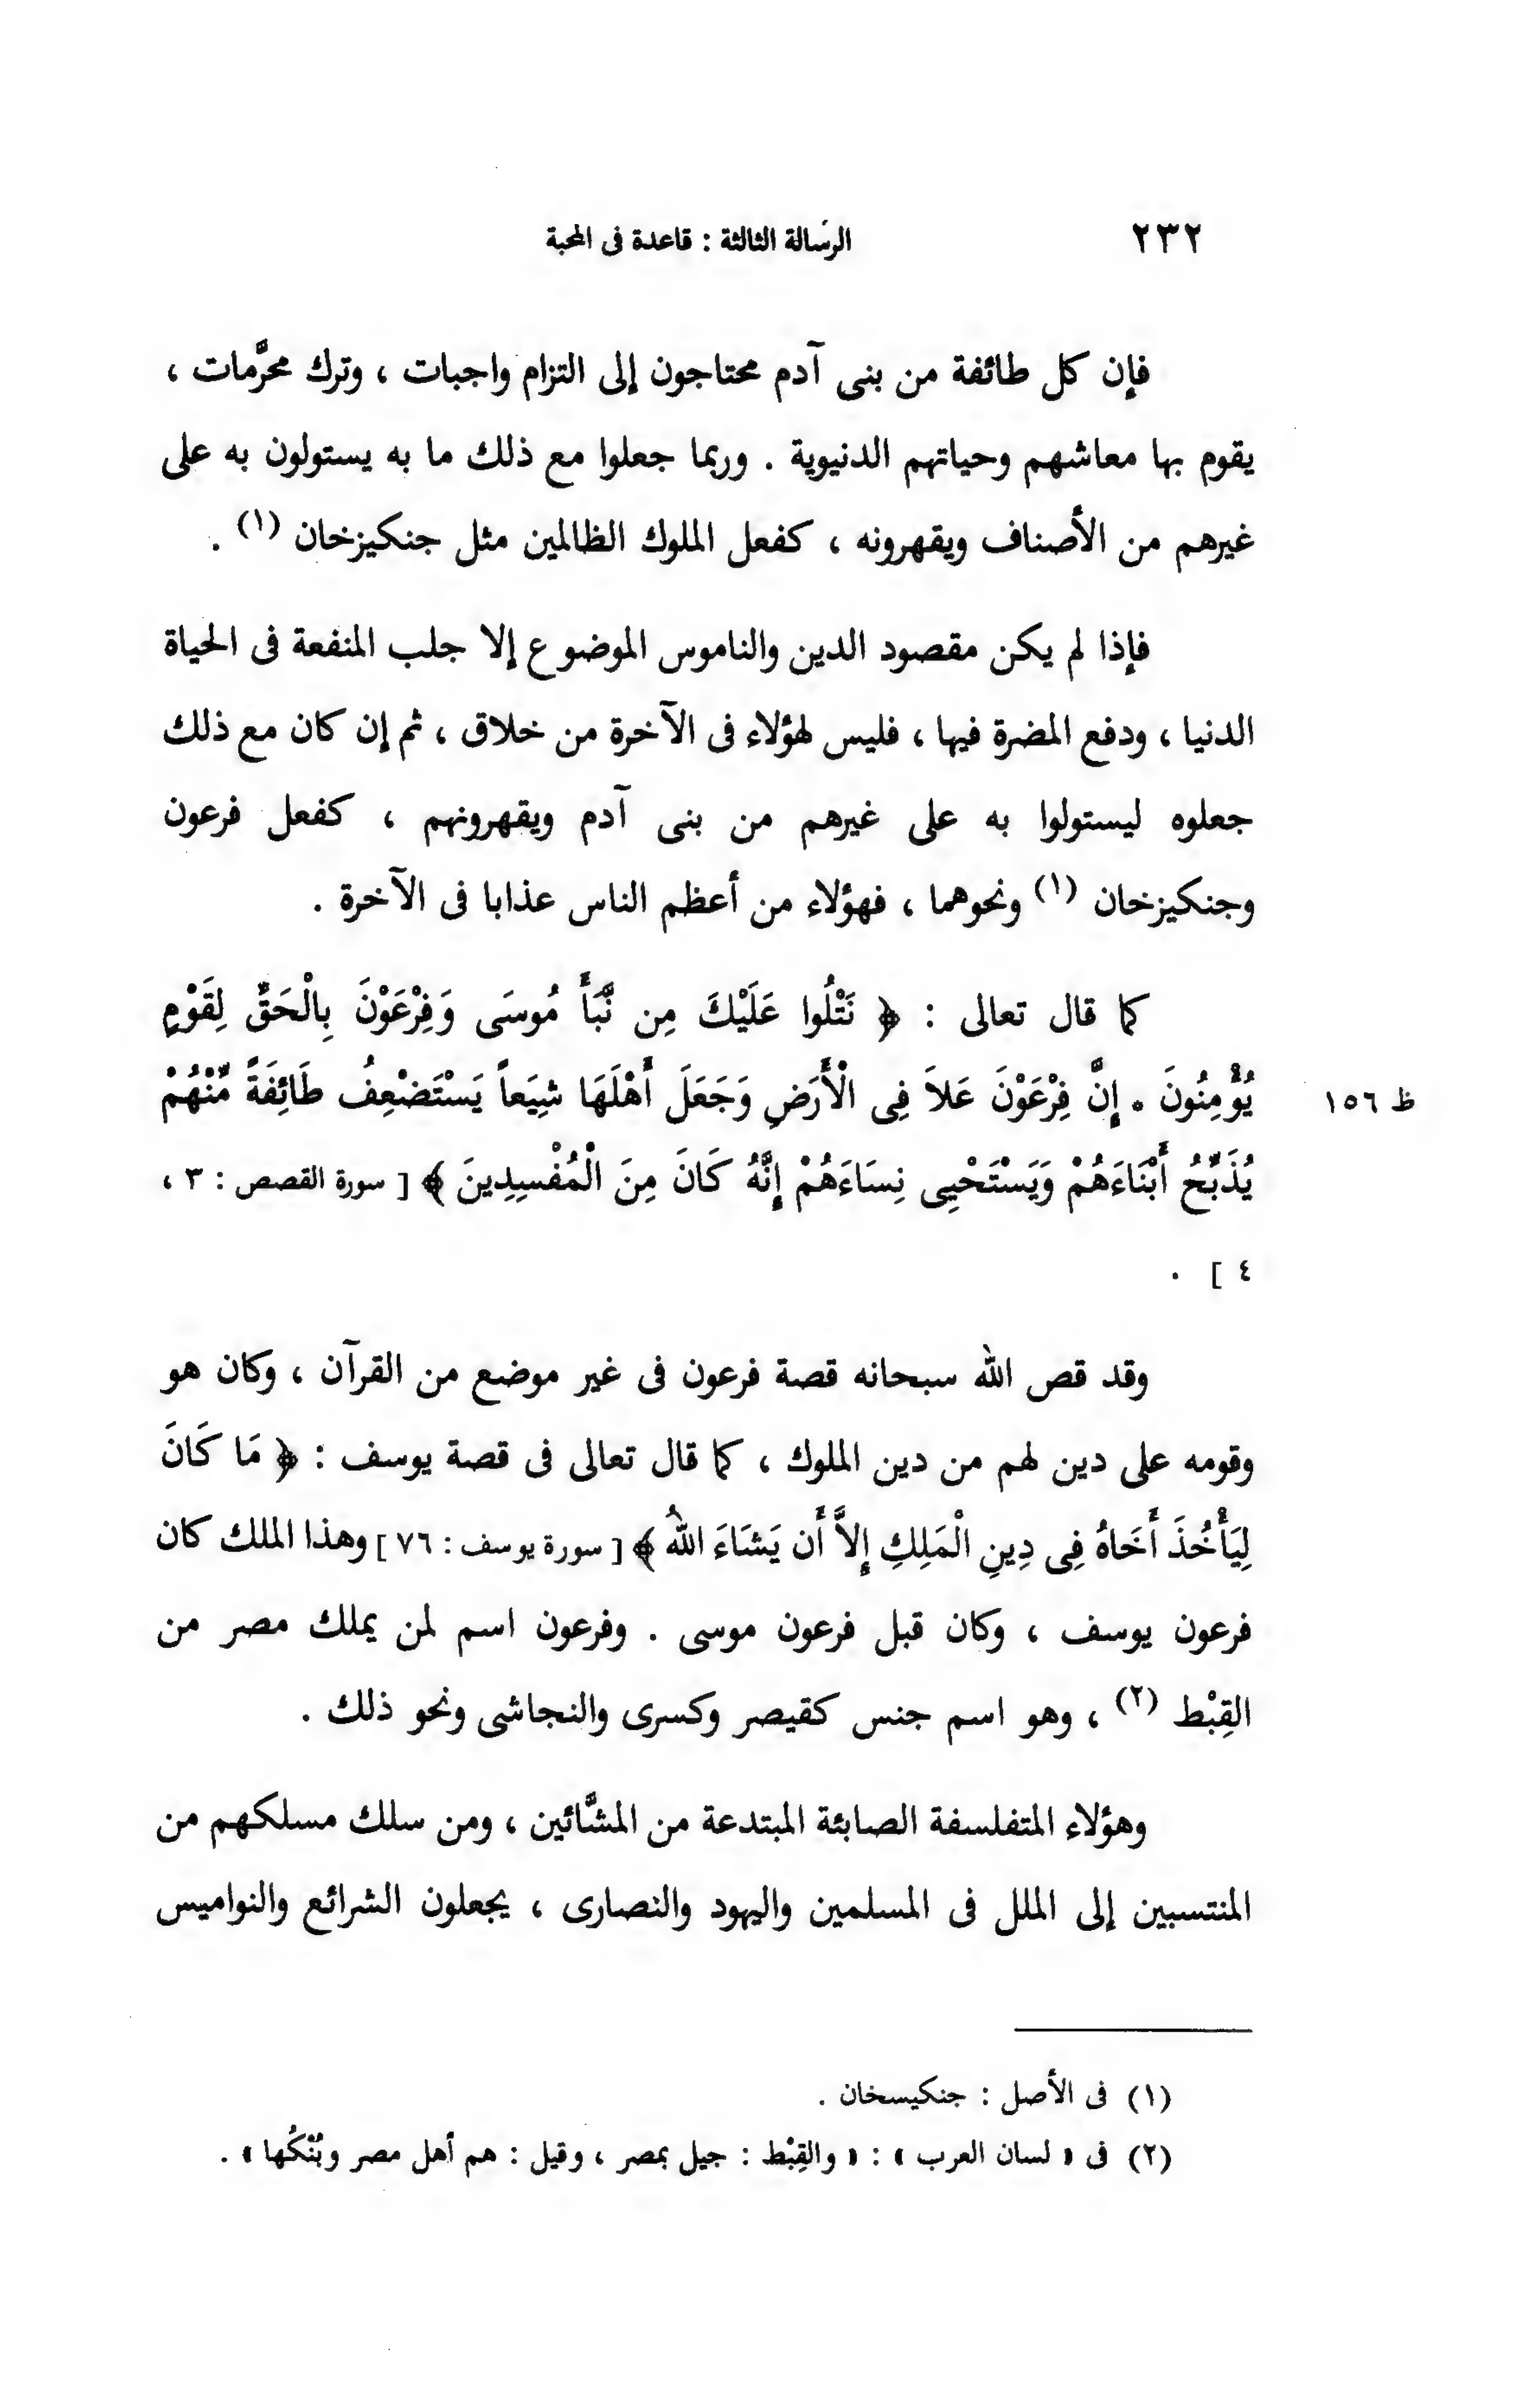 ٢٣٢
الرسالة الثالثة : قاعدة فى المحبة
فإن كل طائفة من بنى آدم محتاجون إلى التزام واجبات ، وترك محرَّمات ،
يقوم بها معاشهم وحياتهم الدنيوية . وربما جعلوا مع ذلك ما به يستولون به على
غيرهم من الأصناف ويقهرونه ، كفعل الملوك الظالمين مثل جنكيزخان (١) .
فإذا لم يكن مقصود الدين والناموس الموضوع إلا جلب المنفعة فى الحياة
الدنيا ، ودفع المضرة فيها ، فليس لهؤلاء فى الآخرة من خلاق ، ثم إن كان مع ذلك
جعلوه ليستولوا به على غيرهم من بنى آدم ويقهرونهم ، كفعل فرعون
وجنكيزخان (١) ونحوهما ، فهؤلاء من أعظم الناس عذابا فى الآخرة .
كما قال تعالى : ﴿ نَتْلُوا عَلَيْكَ مِن نَّبَأِ مُوسَى وَفِرْعَوْنَ بِالْحَقِّ لِقَوْمٍ
يُؤْمِنُونَ . إِنَّ فِرْعَوْنَ عَلاَ فِى الْأَرَضِ وَجَعَلَ أَهْلَهَا شِيَعاً يَسْتَضْعِفُ طَائِفَةً مِّنْهُمْ
ظ ١٥٦
يُذَبِّحُ أَبْنَاءَهُمْ وَيَسْتَحْيِى نِسَاءَهُمْ إِنَّهُ كَانَ مِنَ الْمُفْسِدِينَ ﴾ [ سورة القصص : ٣ ،
٤ ] .
وقد قص الله سبحانه قصة فرعون فى غير موضع من القرآن ، وكان هو
وقومه على دين لهم من دين الملوك ، كما قال تعالى فى قصة يوسف : ﴿ مَا كَانَ
لِيَأْخُذَ أَخَاهُ فِى دِينِ الْمَلِكِ إِلاَّ أَن يَشَاءَ اللهُ ﴾ [ سورة يوسف : ٧٦ ] وهذا الملك كان
فرعون يوسف ، وكان قبل فرعون موسى . وفرعون اسم لمن يملك مصر من
القِبْط (٢) ، وهو اسم جنس كقيصر وكسرى والنجاشى ونحو ذلك .
وهؤلاء المتفلسفة الصابئة المبتدعة من المشَّائين ، ومن سلك مسلكهم من
المنتسبين إلى الملل فى المسلمين واليهود والنصارى ، يجعلون الشرائع والنواميس
(١) فى الأصل : جنكيسخان .
(٢) فى « لسان العرب » : « والقِبْط : جيل بمصر ، وقيل : هم أهل مصر وبُنْكُها » .